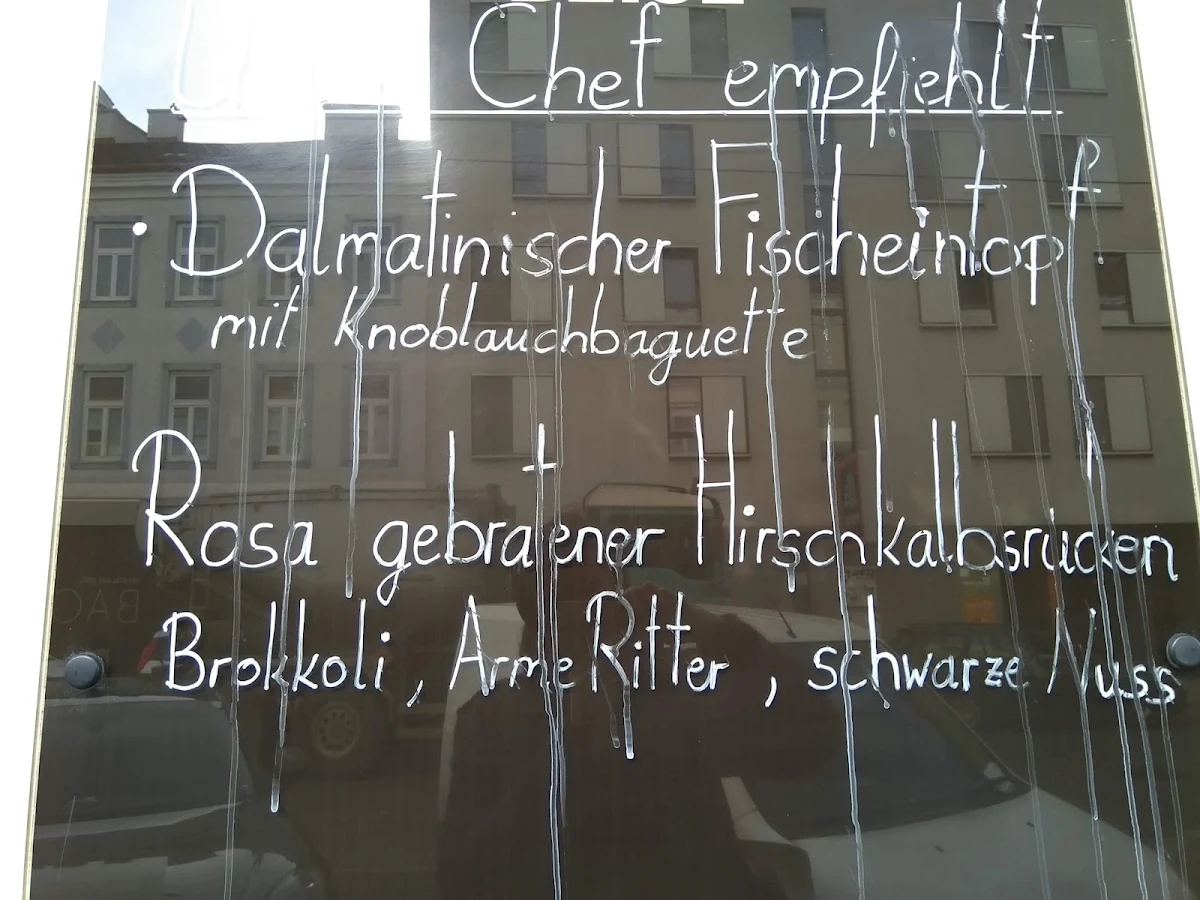 Chef empfiehlt
• Dalmatinischer Fischeintopf
mit Knoblauchbaguette
Rosa gebratener Hirschkalbsrücken
Brokkoli, Arme Ritter, schwarze Nuss